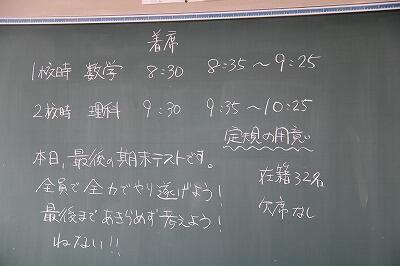 着席
1校時 数学 8:30 8:35～9:25
2校時 理科 9:30 9:35～10:25
定規の用意
本日、最後の期末テストです。
全員で全力でやり遂げよう!
最後まであきらめず考えよう!
ねない!!
在籍32名
欠席なし